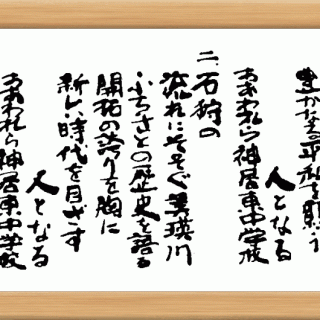 豊かなる平和を願う
人となる
ああわれら神居東中学校
二、石狩の
流れにそそぐ美瑛川
ふるさとの歴史を語る
開拓の誇りを胸に
新しい時代を目ざす
人となる
ああわれら神居東中学校